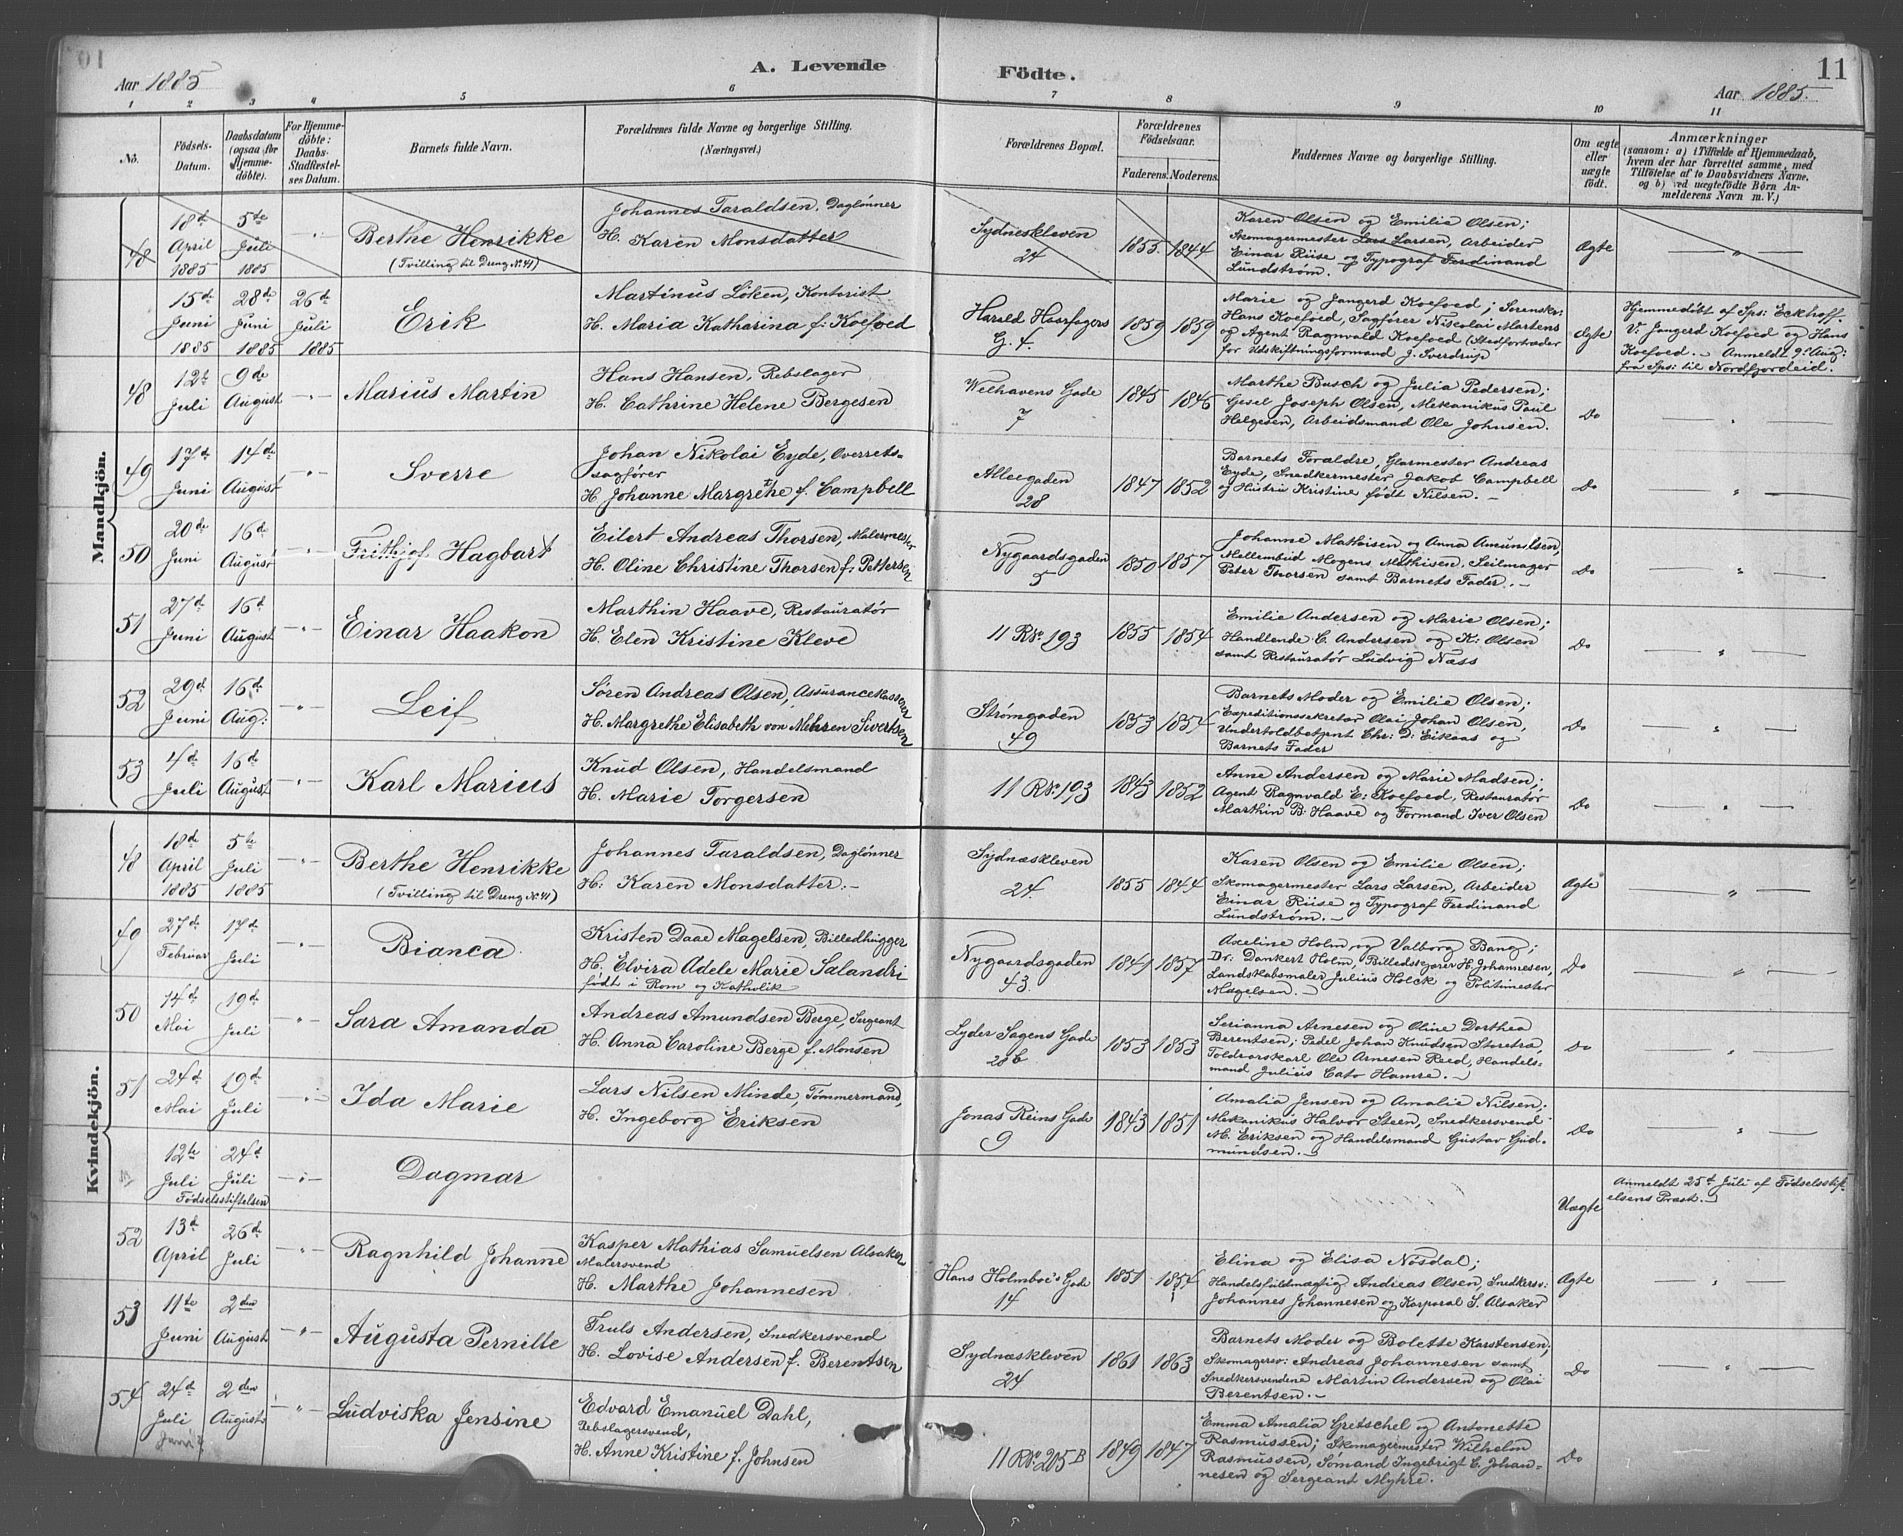 Aar 1885
A. Levende
Födte.
Aar 1885.
11
1 2 3 4 5 6 7 8 9 10 11
No.
Födsels-Datum.
Daabsdatum (ogsaa for Hjemme-döbte).
For Hjemme-döbte: Daabs-Stadfæstel-ses Datum.
Barnets fulde Navn.
Forældrenes fulde Navne og borgerlige Stilling.
(Næringsvei.)
Forældrenes Bopæl.
Forældrenes Födselsaar.
Faderens. Moderens.
Faddernes Navne og borgerlige Stilling.
Om ægte eller uægte födt.
Anmærkninger
(saasom: a) i Tilfælde af Hjemmedaab,
hvem der har forrettet samme, med
Tilföielse af to Daabsvidners Navne,
og b) ved uægtefödte Börn An-
melderens Navn m. V.)
Mandkjön.
48 18d April 1885 5te Juli 1885 - " - Berthe Henrikke
(Tvilling til Dreng No 41)
Johannes Taraldsen, Daglønner
H. Karen Monsdatter
Sydneskleven 24
1855. 1844
Karen Olsen og Emilie Olsen;
Skomagermester Lars Larsen, Arbeider
Einar Riise og Typograf Ferdinand
Lundstrøm.
Ægte
15de Juni 1885 28de Juni 1885 26de Juli 1885 Erik
Martinus Löken, Kontorist
H. Maria Katharina f: Koefoed
Harald Haarfagers G. 4.
1859 1859
Marie og Jangerd Koefoed; Sorenskr:
Hans Koefoed, Sagförer Niscolai Martens
og Agent Ragnvald Koefoed (Stedfortræder
for Udskiftningsformand J. Sverdrup
Ægte
Hjemmedöbt af Sps: Eckhoff.
V: Jangerd Koefoed og Hans
Koefoed. - Anmeldt 9: Aug:
fra Sps: til Nordfjordeid.
48 12t Juli 9de August - " - Marius Martin
Hans Hansen, Rebslager
H. Cathrine Helene Bergesen
Welhavens Gade 7
1845 1846
Marthe Busch og Julia Pedersen;
Gesel Joseph Olsen, Mekanikus Paul
Helgesen, Arbeidsmand Ole Johnsen.
Do
49 17d Juni 14de August - " - Sverre
Johan Nikolai Eyde, Overrets-
sagfører
H. Johanne Margrethe f. Campbell
Alleegaden 28
1847 1852
Barnets Forældre, Glarmester Andreas
Eyde, Snedkermester Jakob Campbell
og Hustru Kristine født Nilsen. -
Do
50 20de Juni 16de August - " - Frithjof Hagbart
Eilert Andreas Thorsen, Malermester
H. Oline Christine Thorsen f: Pettersen
Nygaardsgaden 5
1850 1857
Johanne Mathisen og Anna Amundsen,
Mellembud Mogens Mathisen, Seilmager
Peter Thorsen samt Barnets Fader. -
Do
51 27d Juni 16d August - " - Einar Haakon
Marthin Haave, Restauratør
H. Elen Kristine Kleve
11 R No 193
1855 1854
Emilie Andersen og Marie Olsen;
Handlende C. Andersen og K: Olsen
samt Restauratør Ludvig Næss
Do
52 29d Juni 16d Aug: - " - Leif
Søren Andreas Olsen, Assurancekasserer
H. Margrethe Elisabeth von Mehren Sivertsen
Strømgaden 49
1853 1854
Barnets Moder og Emilie Olsen;
Expeditionssekretær Olai Johan Olsen,
Undertoldbetjent Chr: D: Eikaas og
Barnets Fader
Do
53 4d Juli 16d August - " - Karl Marius
Knud Olsen, Handelsmand
H. Marie Torgersen
11 R No 193
1843 1852
Anne Andersen og Marie Madsen;
Agent Ragnvald E: Koefoed, Restauratør
Marthin B: Haave og Formand Iver Olsen
Do
Kvindekjön.
48 18d April 1885 5te Juli 1885 - " - Berthe Henrikke
(Tvilling til Dreng No 41)
Johannes Taraldsen, Daglønner
H: Karen Monsdatter. -
Sydnæskleven 24.
1855 1844
Karen Olsen og Emilie Olsen;
Skomagermester Lars Larsen, Arbeider
Einar Riise og Typograf Ferdinand
Lundstrøm. -
Ægte
49 27de Februar 17de Juli - " - Bianca
Kristen Daae Magelsen, Billedhugger
H. Elvira Adele Marie Salandri
født i Rom og Katholik
Nygaardsgaden 43
1841 1857
Axeline Holm og Valborg Bang;
Dr: Dankert Holm, Billedskjærer H. Johannesen,
Landskabsmaler Julius Holck og Politimester
Magelsen. -
Do
50 14d Mai 19de Juli - " - Sara Amanda
Andreas Amundsen Berge, Sergeant
H. Anna Caroline Berge f. Monsen
Lyder Sagens Gade 28b
1853 1853
Serianna Arnesen og Oline Dorthea
Berentsen; Pedel Johan Knudsen Sturetra,
Toldrorskarl Ole Arnesen Reed, Handels-
mand Julius Cato Hamre. -
Do
51 24d Mai 19de Juli Ida Marie
Lars Nilsen Minde, Tømmermand,
H. Ingeborg Eriksen
Jonas Reins Gade 9
1843 1851
Amalia Jensen og Amalie Nilsen;
Mekanikus Halvor Steen, Snedkersvend
M. Eriksen og Handelsmand Gustav Gud-
mundsen. -
Do
12te Juli 24d Juli
Födselsstiftelsen
Dagmar
Uægte
Anmeldt 25d Juli af Födselsstift-
elsens Præst. -
52 13d April 26de Juli - " - Ragnhild Johanne
Kasper Mathias Samuelsen Alsaker
Malersvend
H. Marthe Johannesen
Hans Holmboe's Gade 14
1851 1854
Elina og Elisa Nøsdal;
Handelsfuldmægtig Andreas Olsen, Snedkersv:
Johannes Johannesen og Korporal S. Alsaker
Ægte
53 11te Juni 2den August - " - Augusta Pernille
Truls Andersen, Snedkersvend
H. Lovise Andersen f. Berentsen
Sydnæskleven 24
1861 1863
Barnets Moder og Bolette Karstensen,
Skomagersv: Andreas Johannesen samt
Snedkersvendene Martin Andersen og Olai
Berentsen. -
Do
54 24d Juli 2den August - " - Ludviska Jensine
Juni?
Edvard Emanuel Dahl,
Rebslagersvend,
H. Anne Kristine f. Johnsen
11 R No 205 B
1849 1847
Emma Amalia Gretschel og Antonette
Rasmussen; Skomagermester Wilhelm
Rasmussen, Sømand Ingebrigt C. Johan-
nesen og Sergeant Myhre.
Do